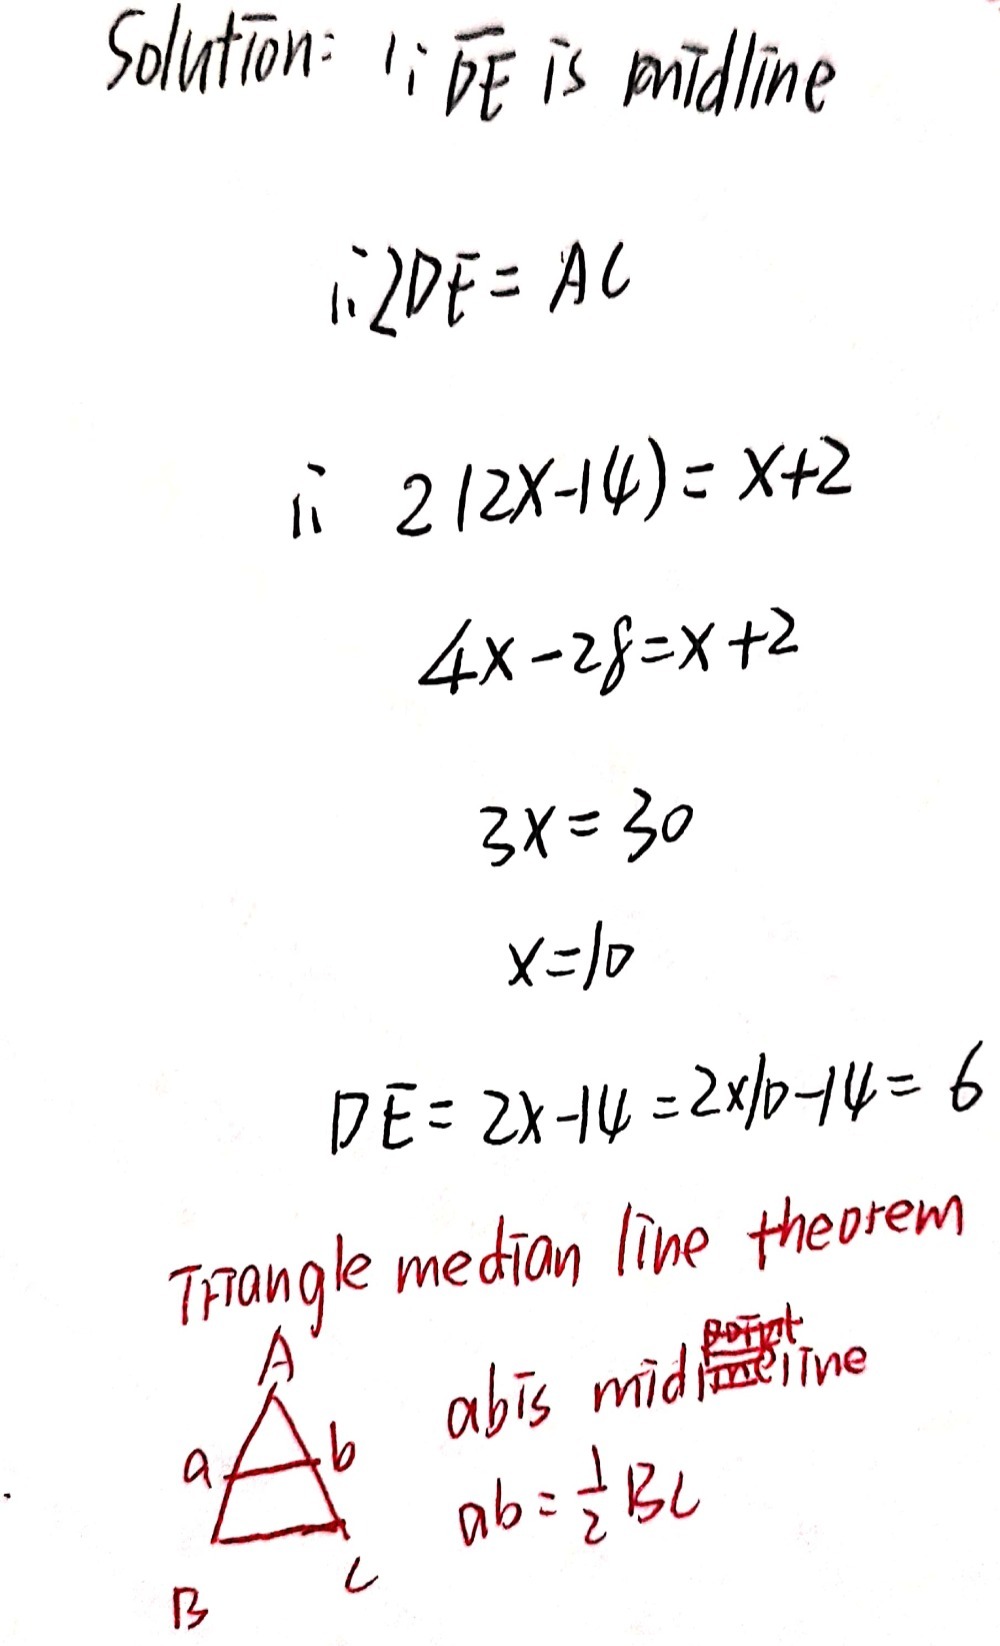 Solution: ∵ DE is midline
∴ 2DE = AC
∴ 2(2x-14) = x+2
4x-28=x+2
3x=30
x=10
DE = 2x-14=2×10-14=6
Triangle median line theorem
A
ab is midline
a
b
ab = 1/2 BC
B
C